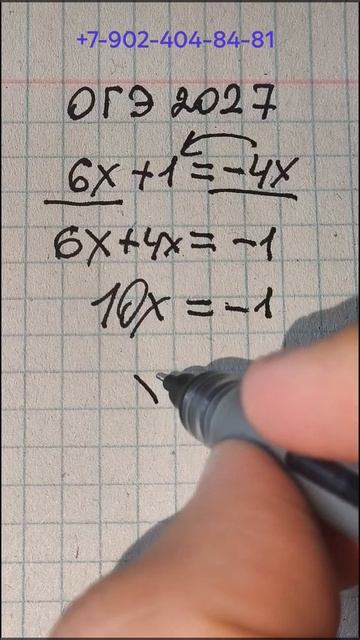 +7-902-404-84-81
ОГЭ 2027
6x + 1 = -4x
6x + 4x = -1
10x = -1